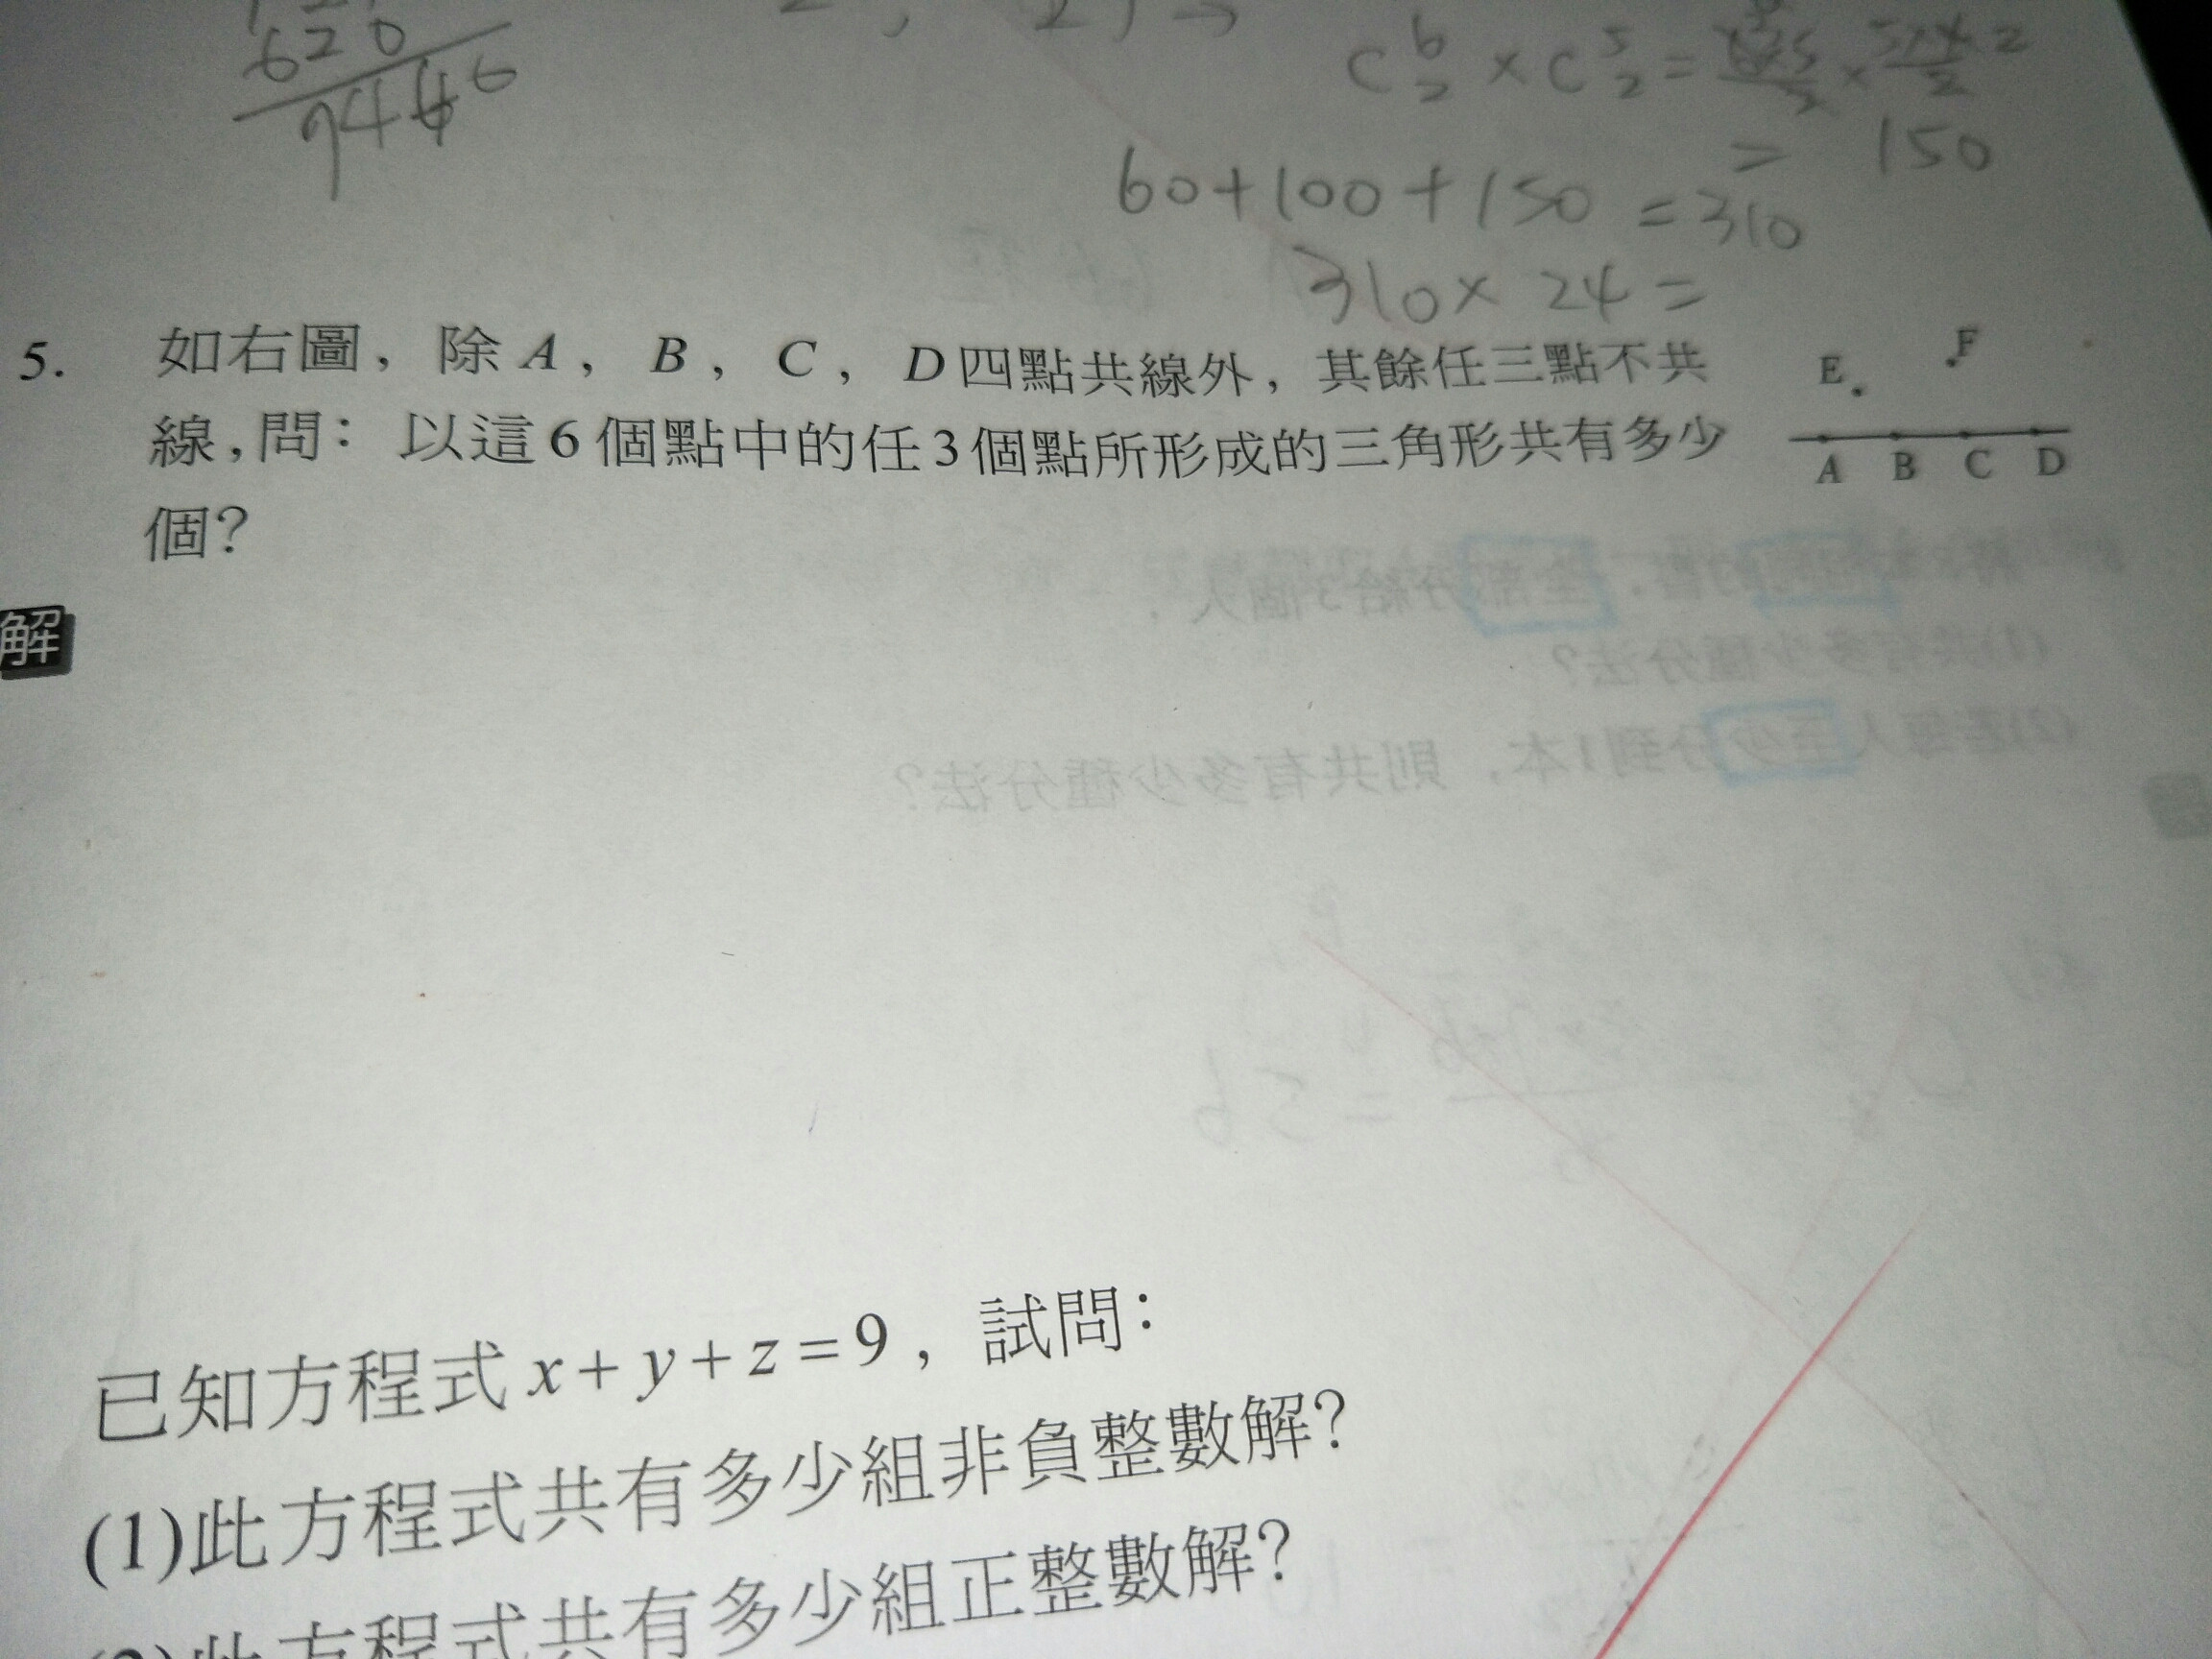 620
7446
C 6 2 × C 5 2 =
= 150
60+100+150 = 310
310 × 24 =
5. 如右圖，除A，B，C，D四點共線外，其餘任三點不共
線，問：以這6個點中的任3個點所形成的三角形共有多少
個？
E F
A B C D
解
已知方程式x+y+z=9，試問：
(1)此方程式共有多少組非負整數解？
(2)此方程式共有多少組正整數解？